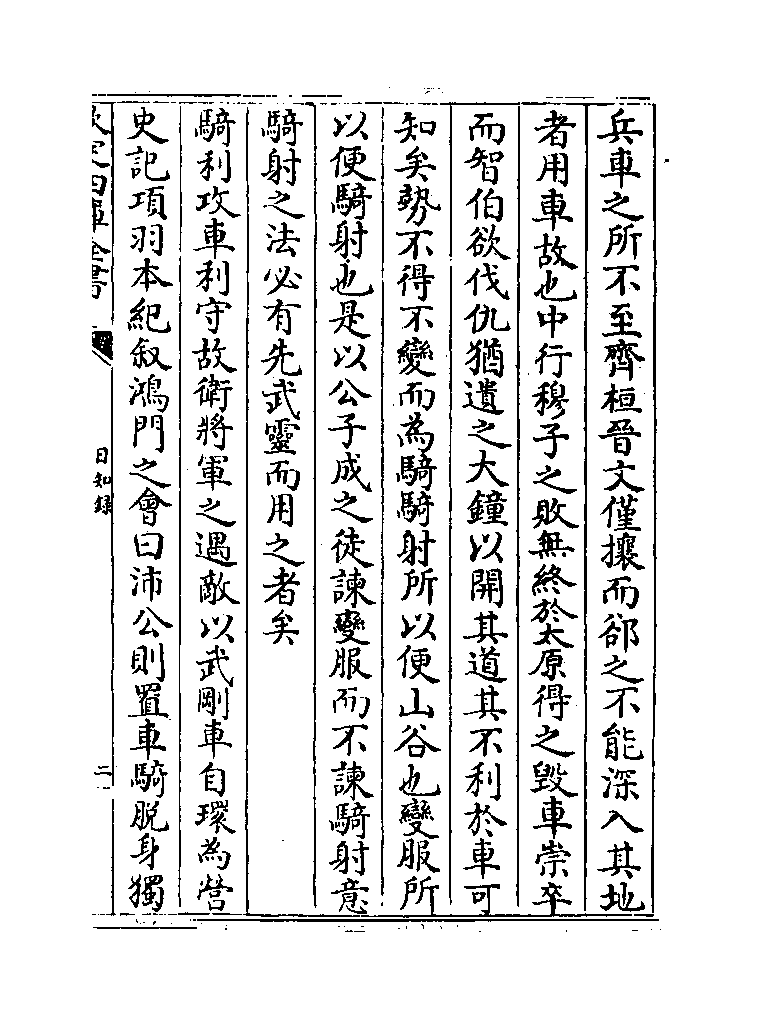 兵車之所不至齊桓晉文僅攘而郤之不能深入其地
者用車故也中行穆子之敗無終於太原得之毀車崇卒
而智伯欲伐仇猶遺之大鐘以開其道其不利於車可
知矣勢不得不變而為騎騎射所以便山谷也變服所
以便騎射也是以公子成之徒諫變服而不諫騎射意
騎射之法必有先武靈而用之者矣
騎利攻車利守故衛將軍之遇敵以武剛車自環為營
史記項羽本紀叙鴻門之會曰沛公則置車騎脱身獨
欽定四庫全書
日知錄
二